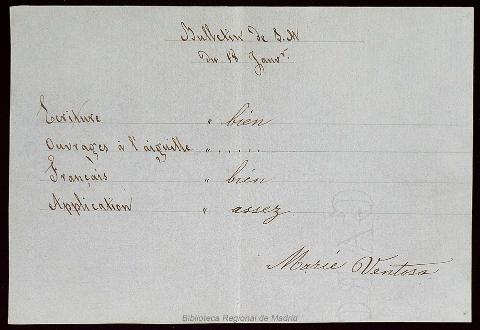 Bulletin de S. M
du 18 Janvr.
Ecriture " bien
Ouvrages à l'aiguille " .....
Français " bien
Application " assez
Marie Ventosa
Biblioteca Regional de Madrid